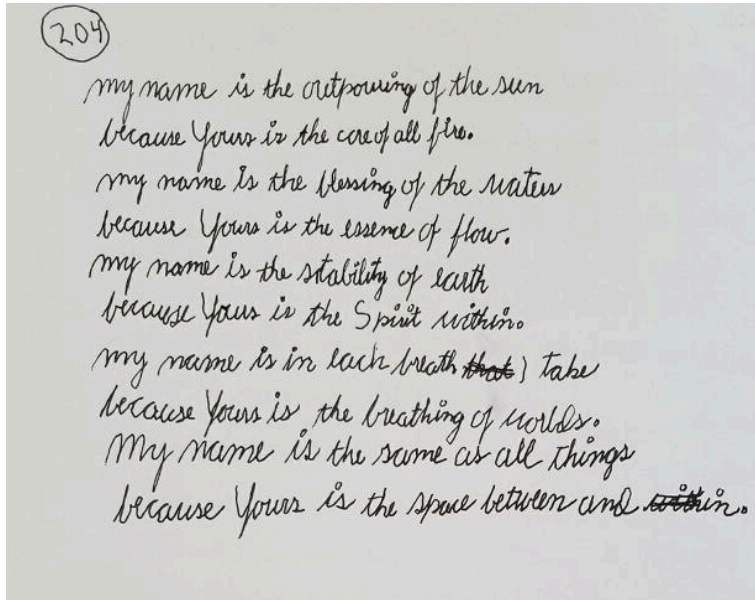 204
my name is the outpouring of the sun
because Yours is the core of all fire.
my name is the blessing of the waters
because Yours is the essence of flow.
my name is the stability of earth
because Yours is the Spirit within.
my name is in each breath that I take
because Yours is the breathing of worlds.
My name is the same as all things
because Yours is the space between and within.